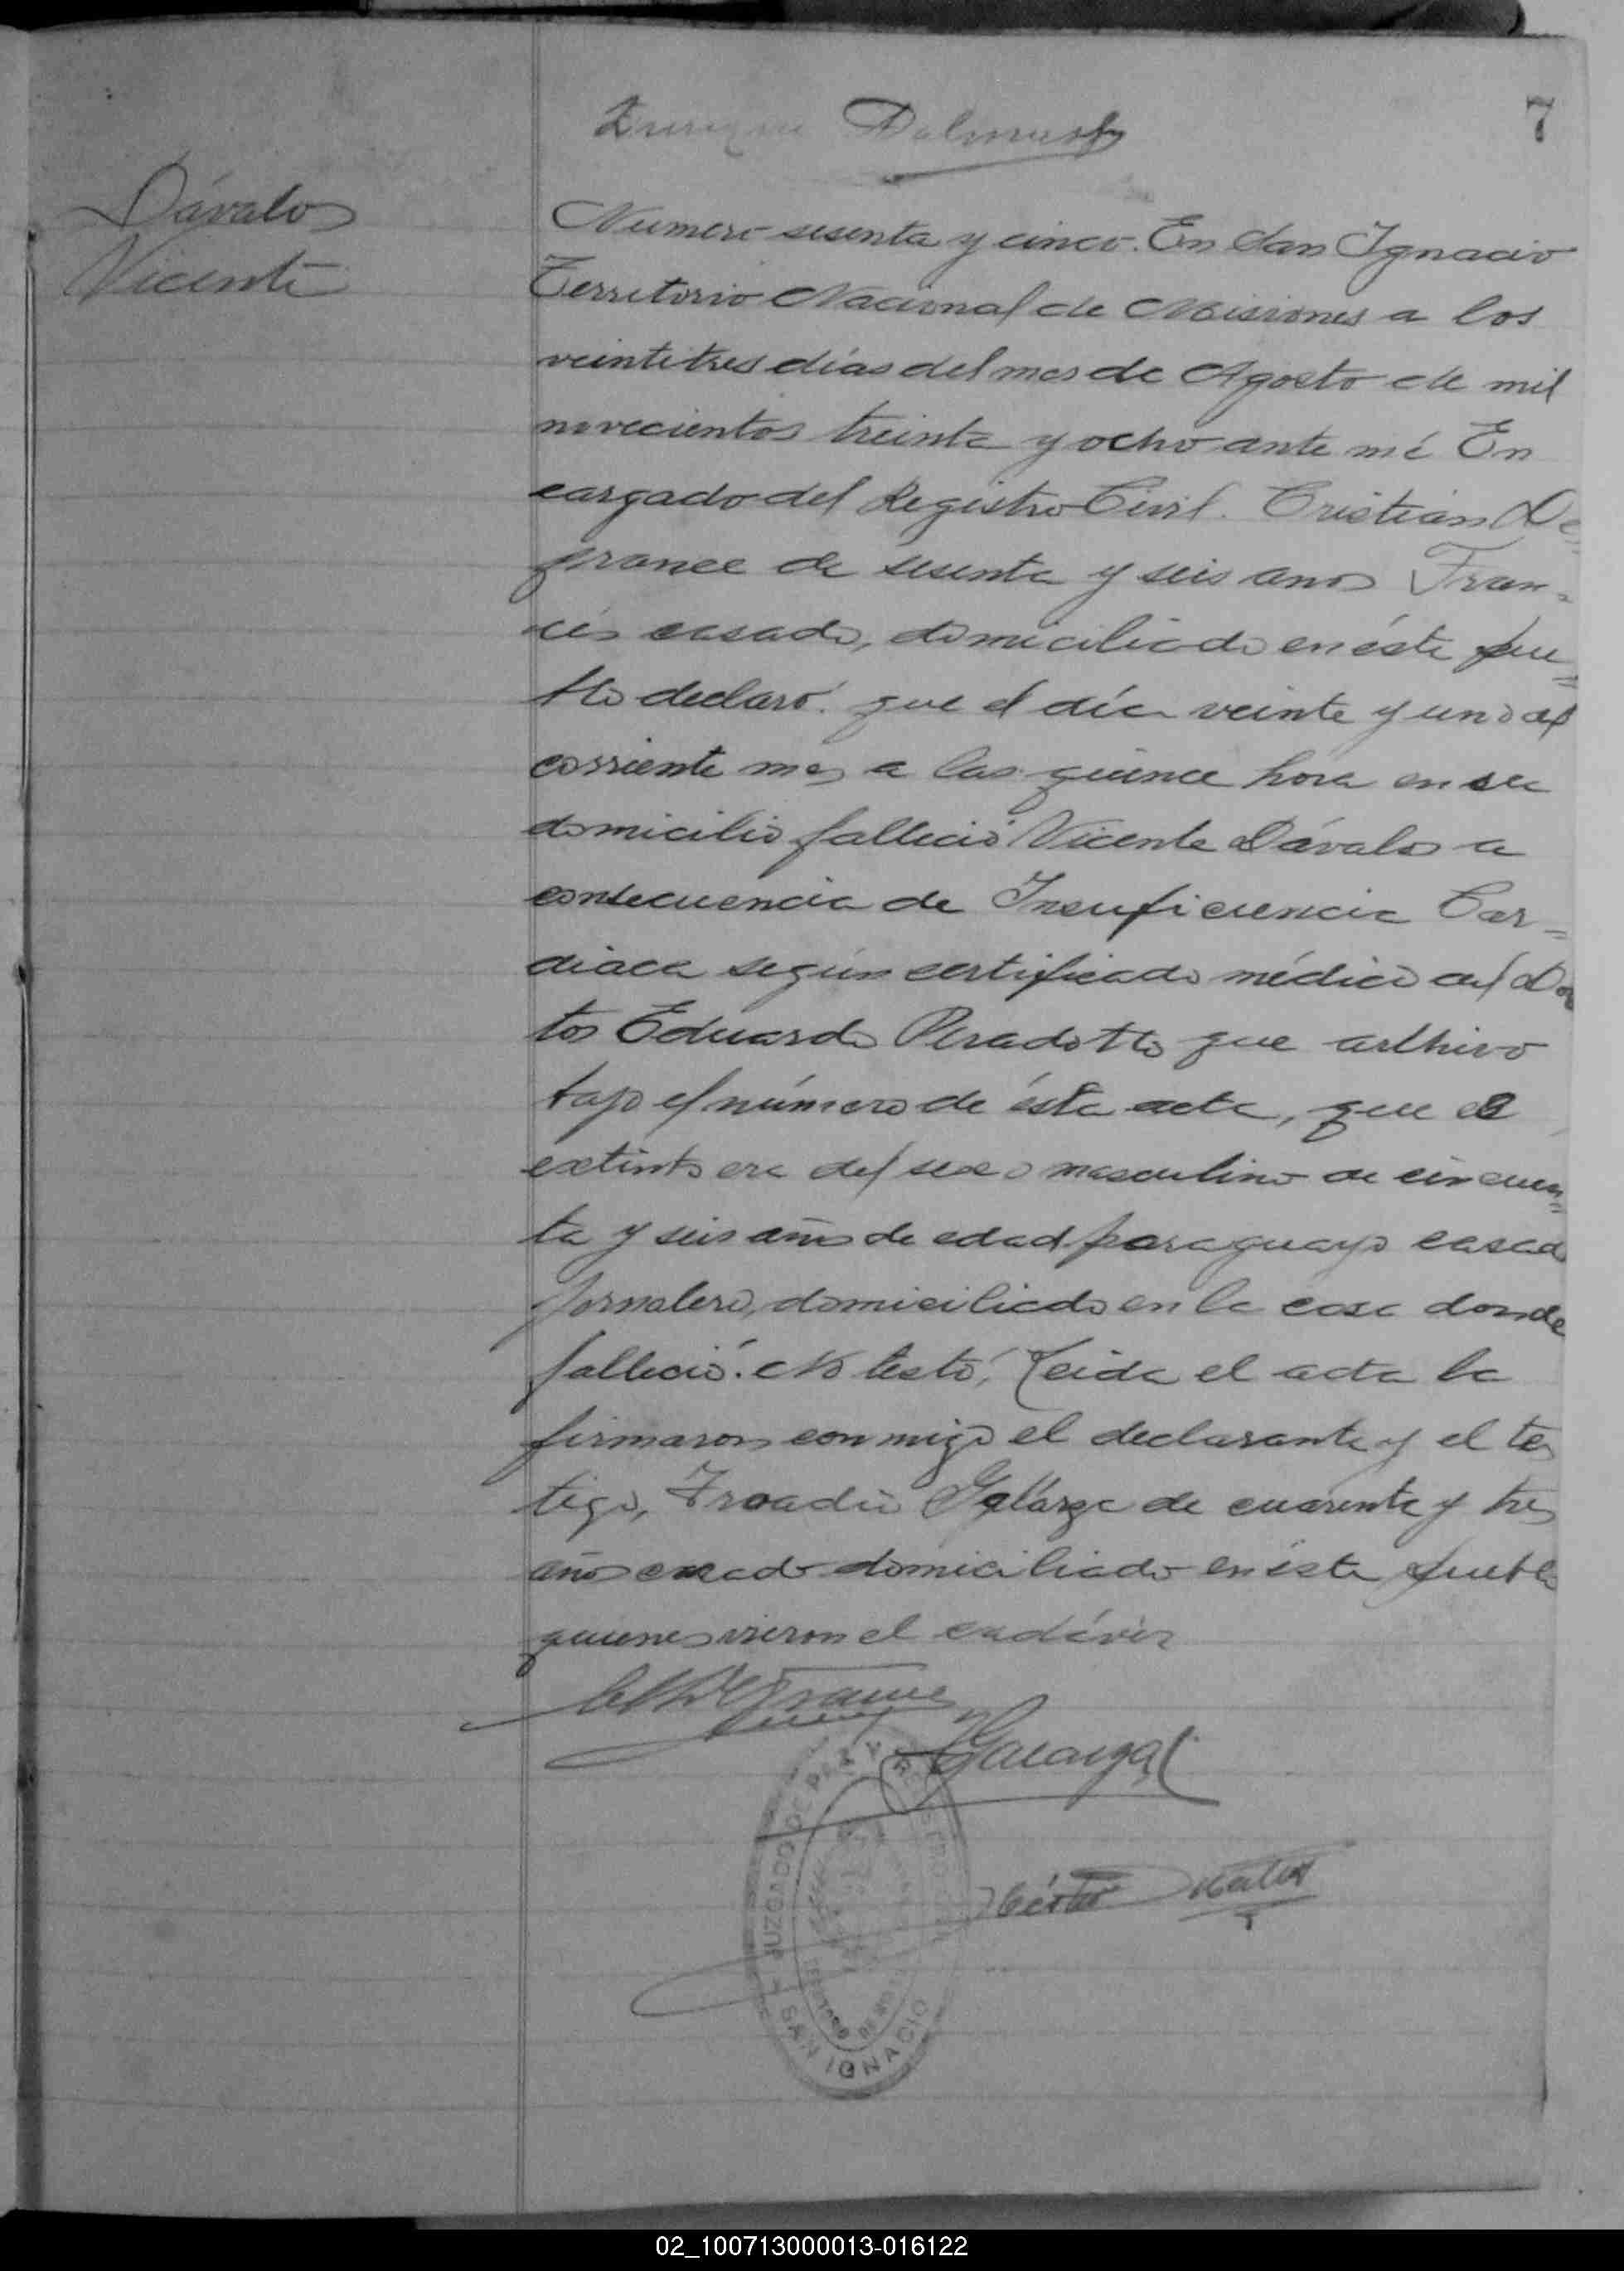 7
Enrique
Dávalos
Vicente
Numero sesenta y cinco. En San Ignacio
Territorio Nacional de Misiones a los
veintitres días del mes de Agosto de mil
novecientos treinta y ocho ante mí En
cargado del Registro Civil. Cristián De=
france de sesenta y seis anos Fran=
cés casado, domiciliado en éste pue=
blo declaró: que el día veinte y uno del
corriente mes a las quince hora en su
domicilio falleció Vicente Dávalos a
consecuencia de Insuficiencia Car=
diaca según certificado médico del Doc
tor Eduardo Peradotto que arlhivo
bajo el número de ésta acta, que el
extinto era del sexo masculino de cincuen=
ta y seis años de edad paraguayo casado
jornalero, domiciliado en la casa donde
falleció. No testó, Leida el acta la
firmaron conmigo el declarante y el tes
tigo, Froadio Galarza de cuarenta y tres
años casado domiciliado en éste pueblo
quienes vieron el cadáver
Defrance
Galarza
JUZGADO DE PAZ Y REGISTRO
SAN IGNACIO
Héctor
02_100713000013-016122